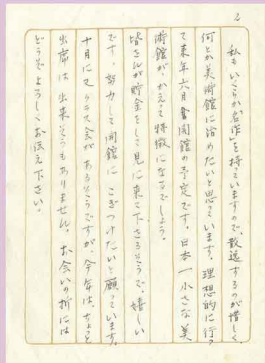 2
私もいくらか名作を持っていますので、散逸するのが惜しく、
何とか美術館に治めたいと思っています。理想的に行っ
て来年六月頃開館の予定です。日本一小さな美
術館が、かえって特徴になるでしょう。
皆さんが貯金をして見に来て下さるそうで、嬉しい
です。努力して開館にこぎつけたいと願っています。
十月に又クラス会があるそうですが今年は、ちょっと
出席は出来そうもありません。お会いの折には
どうぞよろしくお伝え下さい。